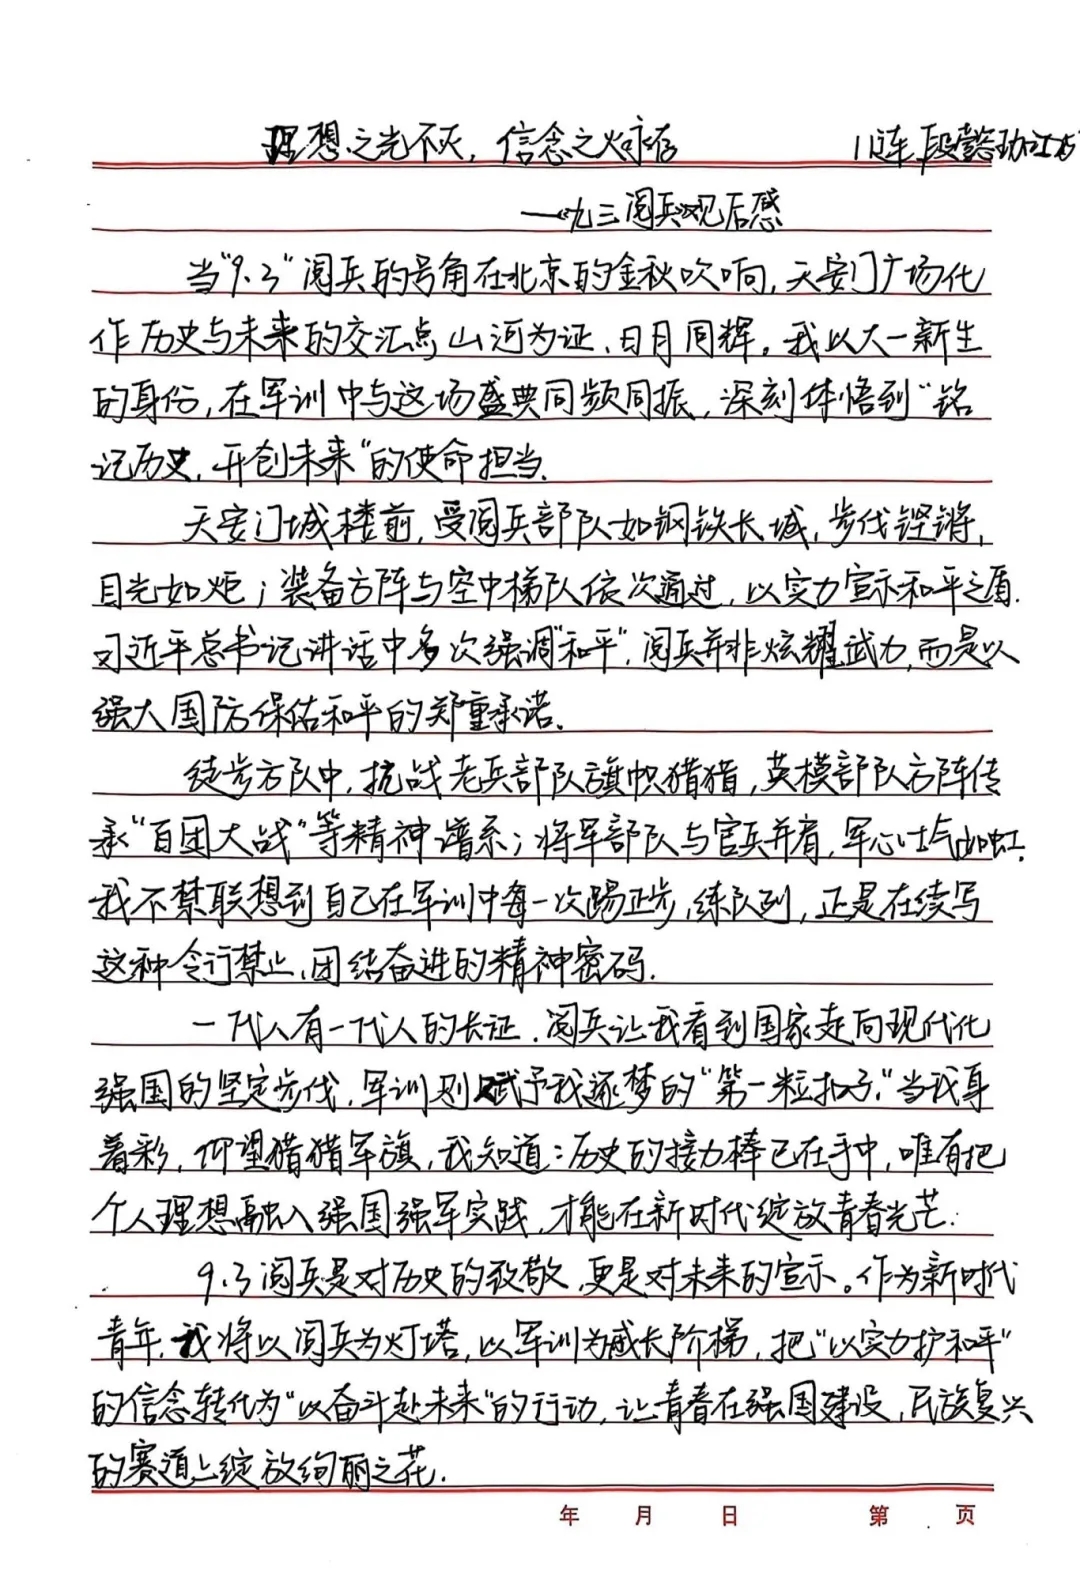 理想之光不灭，信念之火永存 11连 段懿
——九三阅兵观后感
当"9.3"阅兵的号角在北京的金秋吹响，天安门广场化
作历史与未来的交汇点 山河为证、日月同辉。我以大一新生
的身份，在军训中与这场盛典同频同振，深刻体悟到"铭
记历史，开创未来"的使命担当.
天安门城楼前，受阅兵部队如钢铁长城，步伐铿锵，
目光如炬；装备方阵与空中梯队依次通过，以实力宣示和平之盾.
习近平总书记讲话中多次强调"和平"，阅兵并非炫耀武力，而是以
强大国防保佑和平的郑重承诺.
徒步方队中，抗战老兵部队旗帜猎猎，英模部队方阵传
承"百团大战"等精神谱系；将军部队与官兵并肩，军心士气如虹.
我不禁联想到自己在军训中每一次踢正步，练队列，正是在续写
这种令行禁止、团结奋进的精神密码.
一代人有一代人的长征．阅兵让我看到国家走向现代化
强国的坚定步伐，军训则赋予我逐梦的"第一粒扣子."当我身
着彩，仰望猎猎军旗，我知道：历史的接力棒已在手中，唯有把
个人理想融入强国强军实践，才能在新时代绽放青春光芒.
9.3阅兵是对历史的致敬，更是对未来的宣示。作为新时代
青年，我将以阅兵为灯塔，以军训为成长阶梯，把"以实力护和平"
的信念转化为"以奋斗赴未来"的行动，让青春在强国建设，民族复兴
的赛道上绽放绚丽之花.
年 月 日 第 页